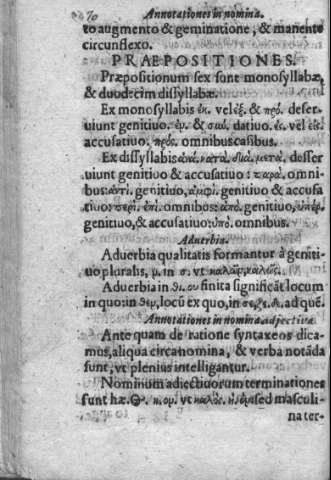 70 Annotationes in nomina.
to augmento & geminatione, & manente
circunflexo.
PRÆPOSITIONES.
Præpositionum sex sunt monosyllabæ,
& duodecim dissyllabæ.
Ex monosyllabis ἐκ. vel ἐξ. & πρό. deser-
uiunt genitiuo. ἐν. & σιὼ. datiuo. ἐς. vel εἰς.
accusatiuo: πρός. omnibus casibus.
Ex dissyllabis ἀνά. κατά. διά. μετά. desser
uiunt genitiuo & accusatiuo: παρά. omni-
bus: ἀντί. genitiuo, ἀμφί. genitiuo & accusa
tiuo: περί. ἐπί. omnibus: ἀπό. genitiuo, ὑπέρ.
genitiuo, & accusatiuo: ὑπό. omnibus.
Aduerbia.
Aduerbia qualitatis formantur à geniti-
uo pluralis, ν. in σ. vt καλῶν, καλῶς.
Aduerbia in θι. ου finita significāt locum
in quo: in θεν, locū ex quo, in σε, ζε. δε. ad quē.
Annotationes in nomina adiectiua
Ante quam de ratione syntaxeos dica-
mus, aliqua circa nomina, & verba notāda
sunt, vt plenius intelligantur.
Nominum adiectiuorum terminationes
sunt hæ. ος. η. ον. vt καλός. ή. όν: sed masculi-
na ter-